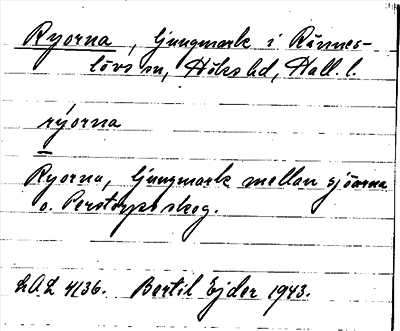 Ryorna, ljungmark i Rännes-
lövs sn, Höks hd, Hall. l.
rýorna
Ryorna, ljungmark mellan sjöarna
o. Perstorps skog.
LAL 4136. Bertil Ejder 1943.